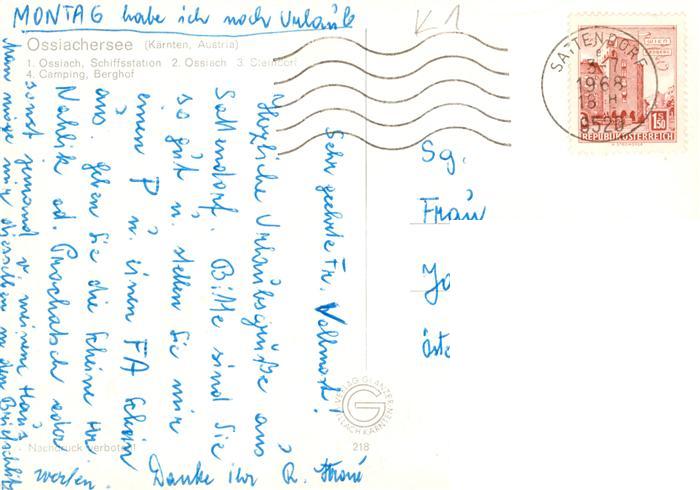 MONTAG habe ich noch Urlaub
K1
Ossiachersee (Kärnten, Austria)
1. Ossiach, Schiffsstation 2. Ossiach 3. Steindorf
4. Camping, Berghof
Sehr geehrte Fr. Vollmost!
Herzliche Urlaubsgrüße aus
Sattendorf. Bitte sind Sie
so gut u. stellen Sie mir
einen P u. einen FA Schein
aus. geben Sie die Scheine Hr.
Nahlik od. Prochatsch oder
sonst jemand v. meinem Haus
Man möge mir dieselben in den Briefschlitz
werfen. Danke ihr R.
Sg.
Frau
Jo
öste
SATTENDORF
1968
9520
WIEN
1.50
REPUBLIK ÖSTERREICH
VERLAG GLANZER
VILLACH KÄRNTEN
G
Nachdruck verboten!
218